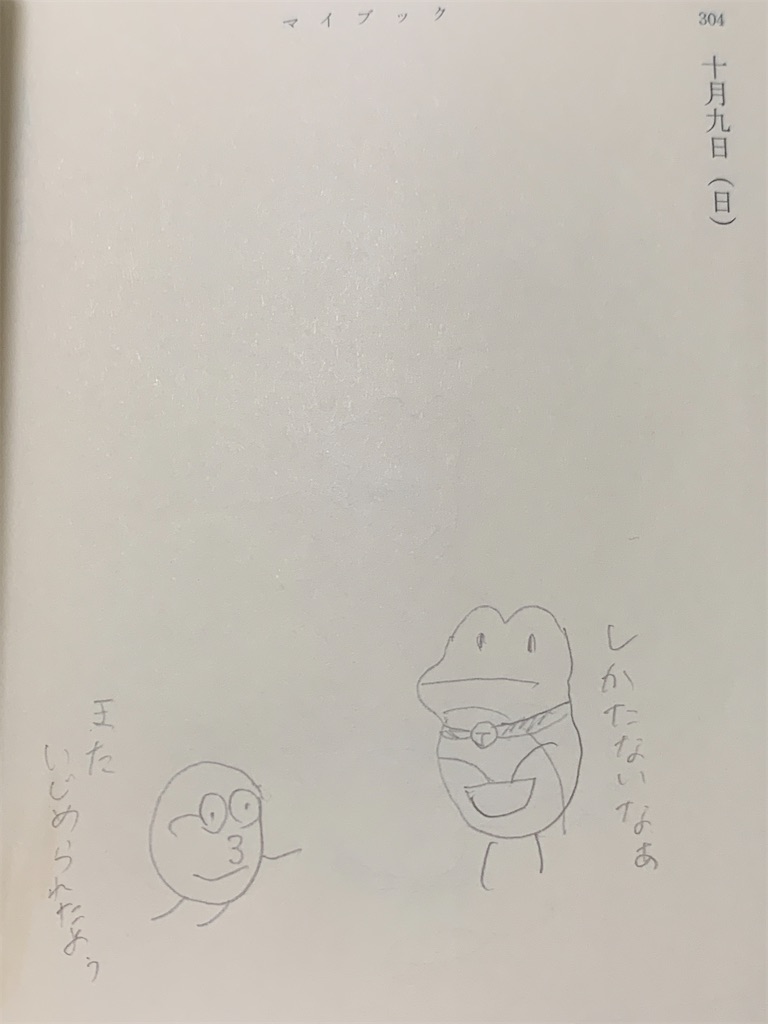 マイブック
304
十月九日(日)
しかたないなあ
王た
いじめられたよぅ
T
3